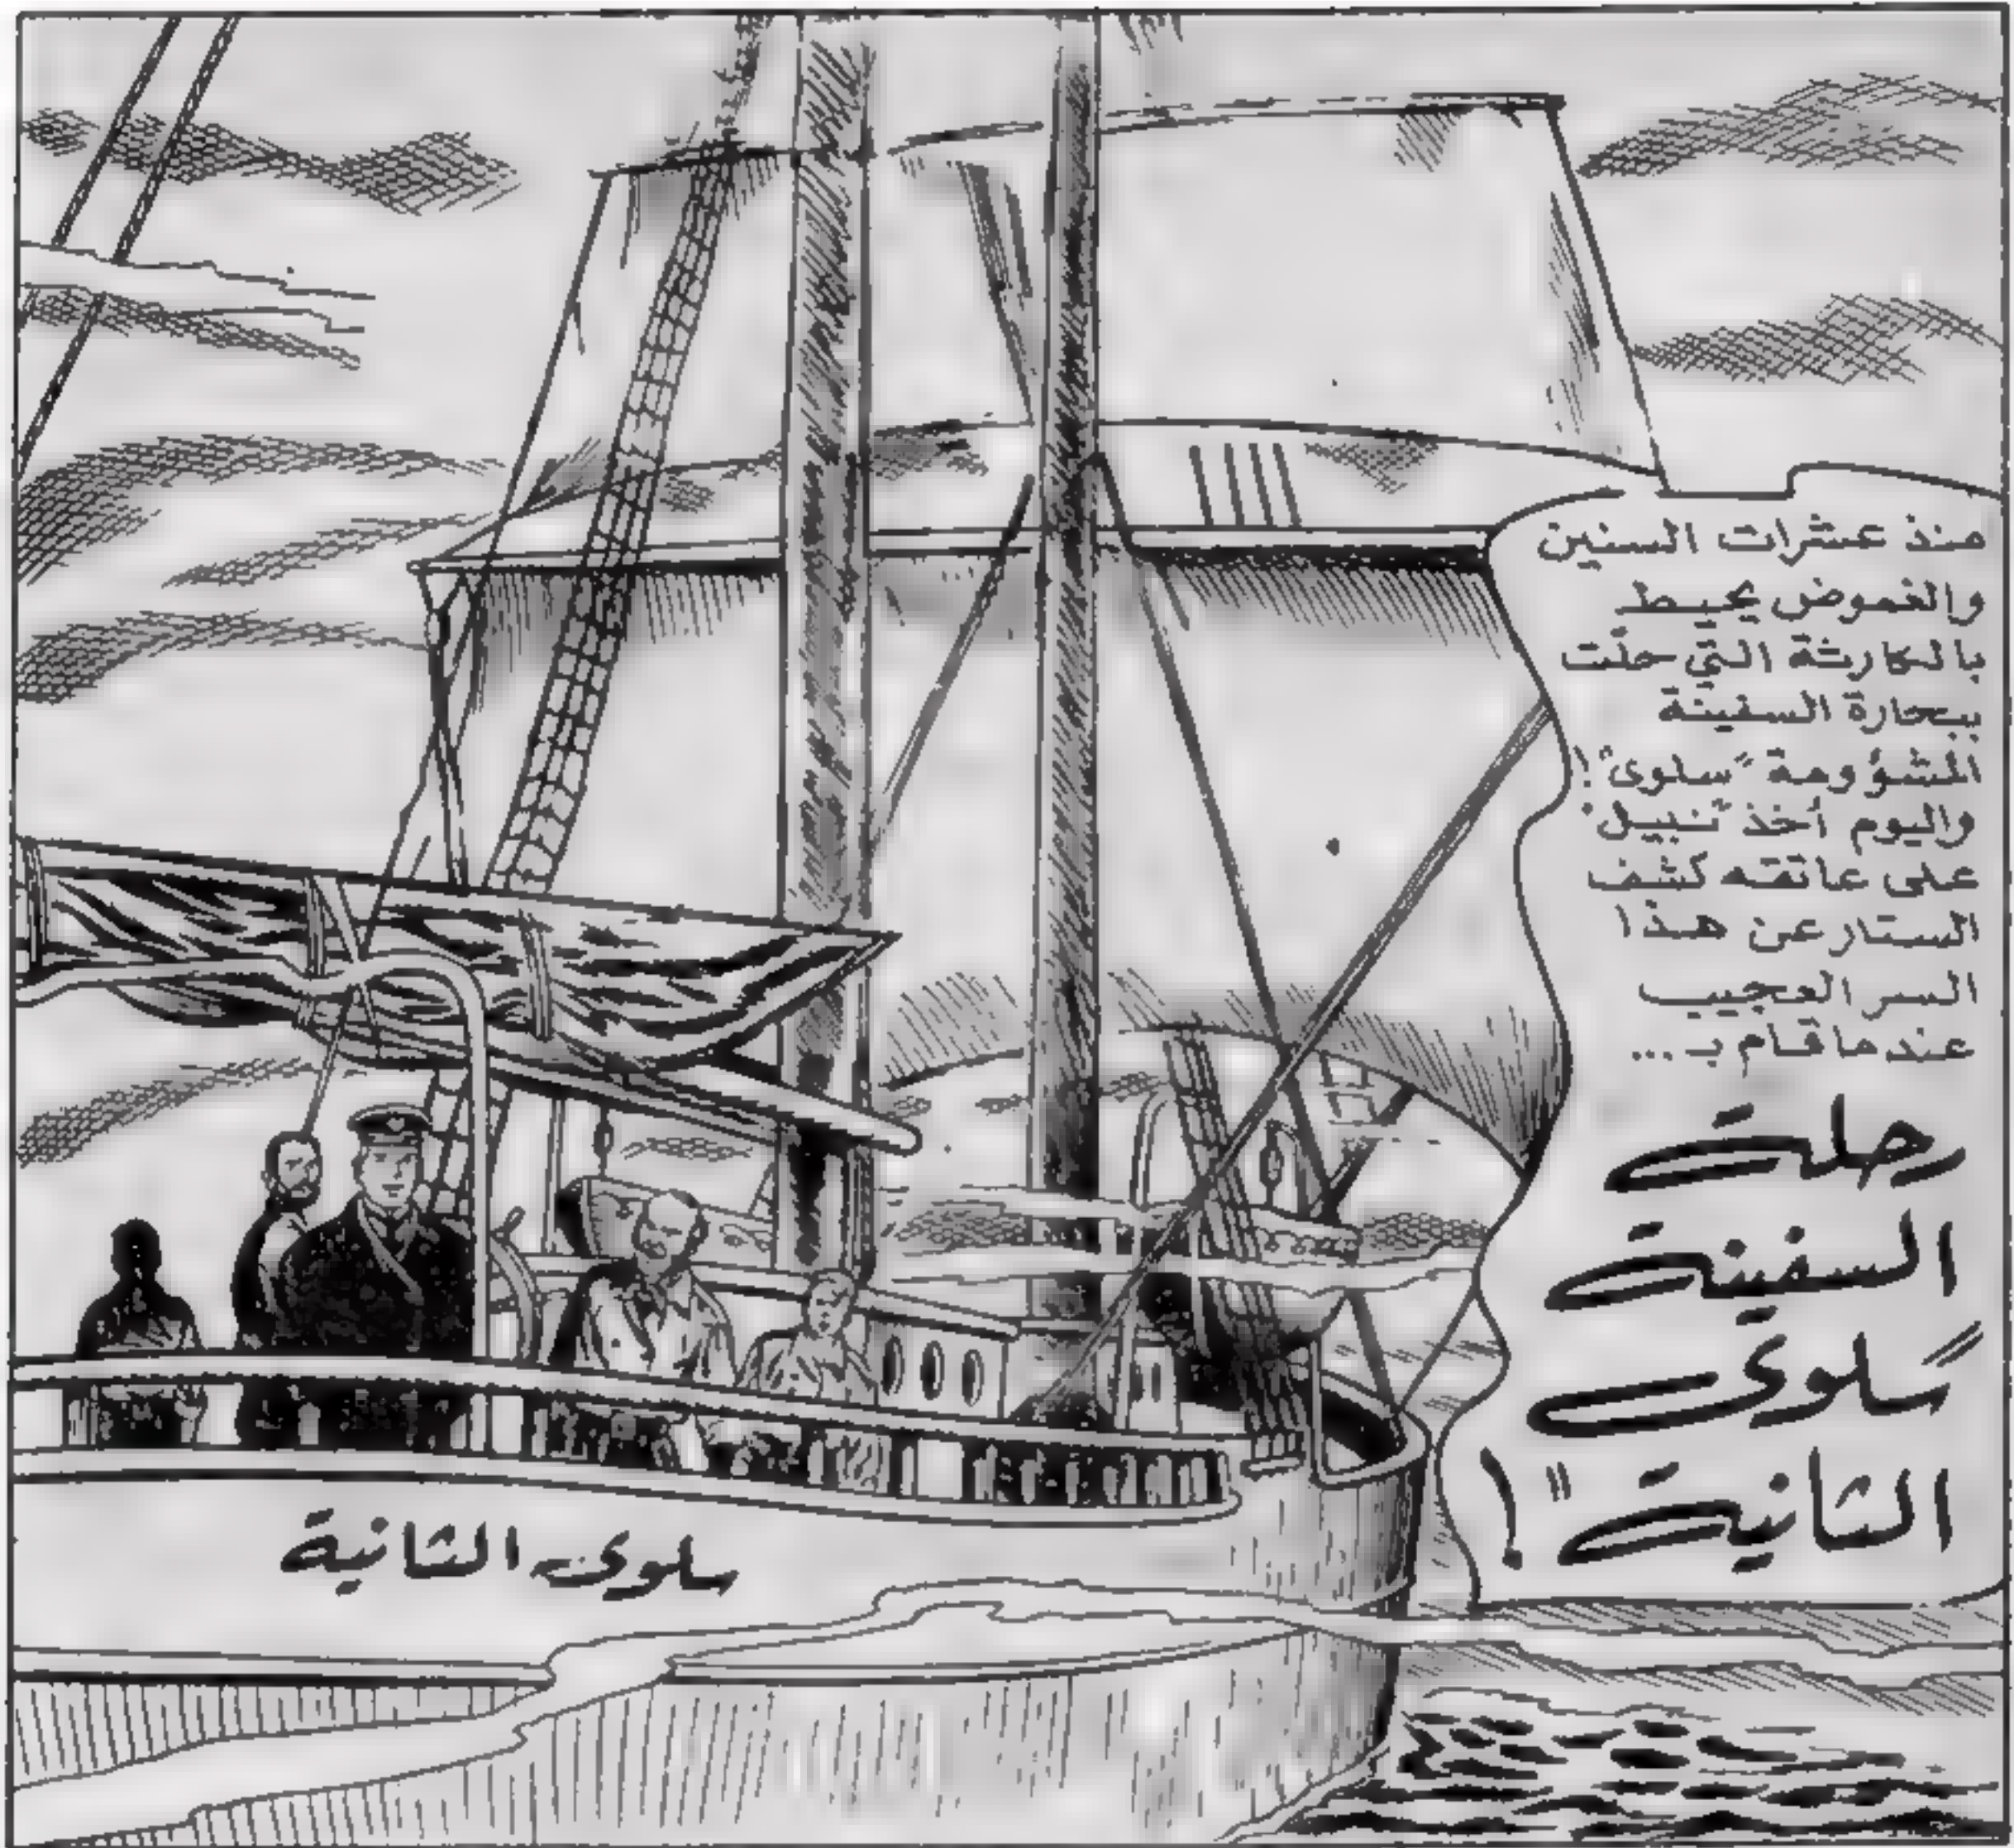 منذ عشرات السنين
والغموض يحيط
بالكارثة التي حلّت
ببحارة السفينة
المشؤومة "سلوى"!
واليوم أخذ "نبيل"
على عاتقه كشف
الستار عن هذا
السر العجيب
عندما قام بـ ...
رحلة
السفينة
"سلوى
الثانية"!
سلوى الثانية